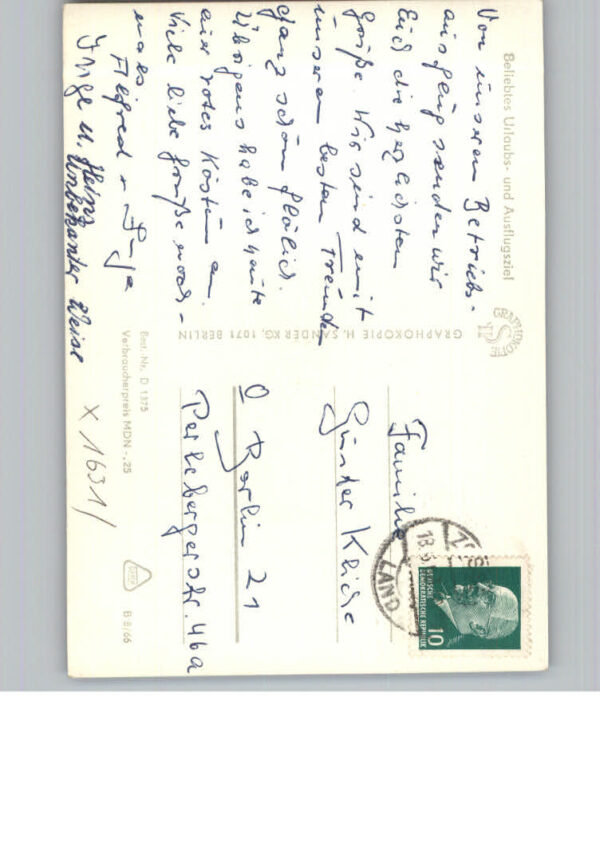 Beliebtes Urlaubs- und Ausflugsziel
Von unserem Betriebs-
ausflug senden wir
Euch die herzlichsten
Grüße. Wir sind mit
unseren besten Freunden
ganz schön fröhlich.
Übrigens habe ich heute
ein rotes Kostüm an.
Viele liebe Grüße noch-
mals
Alfred u. Inge
Inge u. Heinz
Unbekannter Weise
GRAPHOKOPIE
GRAPHOKOPIE H. SANDER KG, 1071 BERLIN
Best.-Nr. D 1375
Verbraucherpreis MDN -,25
X 1631/
B 8/66
Familie
Günter
0 Berlin 21
Perlebergerstr. 46a
LAND
DEUTSCHE
DEMOKRATISCHE REPUBLIK
10